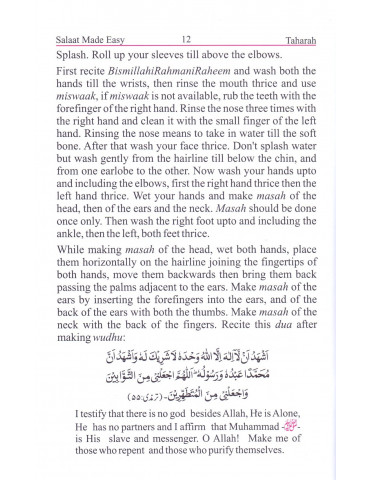 Salaat Made Easy 12 Taharah
Splash. Roll up your sleeves till above the elbows.
First recite BismillahiRahmaniRaheem and wash both the
hands till the wrists, then rinse the mouth thrice and use
miswaak, if miswaak is not available, rub the teeth with the
forefinger of the right hand. Rinse the nose three times with
the right hand and clean it with the small finger of the left
hand. Rinsing the nose means to take in water till the soft
bone. After that wash your face thrice. Don't splash water
but wash gently from the hairline till below the chin, and
from one earlobe to the other. Now wash your hands upto
and including the elbows, first the right hand thrice then the
left hand thrice. Wet your hands and make masah of the
head, then of the ears and the neck. Masah should be done
once only. Then wash the right foot upto and including the
ankle, then the left, both feet thrice.
While making masah of the head, wet both hands, place
them horizontally on the hairline joining the fingertips of
both hands, move them backwards then bring them back
passing the palms adjacent to the ears. Make masah of the
ears by inserting the forefingers into the ears, and of the
back of the ears with both the thumbs. Make masah of the
neck with the back of the fingers. Recite this dua after
making wudhu:
اَشْهَدُ اَنْ لَّآ اِلٰهَ اِلَّا اللّٰهُ وَحْدَهٗ لَا شَرِيْكَ لَهٗ وَاَشْهَدُ اَنَّ
مُحَمَّدًا عَبْدُهٗ وَرَسُوْلُهٗ اَللّٰهُمَّ اجْعَلْنِيْ مِنَ التَّوَّابِيْنَ
وَاجْعَلْنِيْ مِنَ الْمُتَطَهِّرِيْنَ۔ (ترمذی:۵۵)
I testify that there is no god besides Allah, He is Alone,
He has no partners and I affirm that Muhammad -ﷺ-
is His slave and messenger. O Allah! Make me of
those who repent and those who purify themselves.